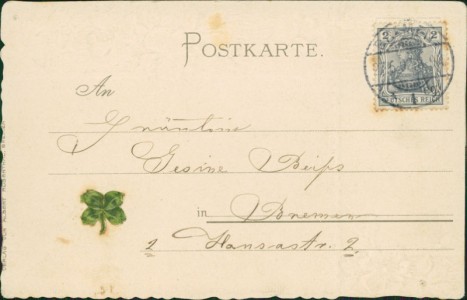 POSTKARTE.
2
DEUTSCHES REICH
An
Fräulein
Gesine
in Bremen
Hansastr. 2.